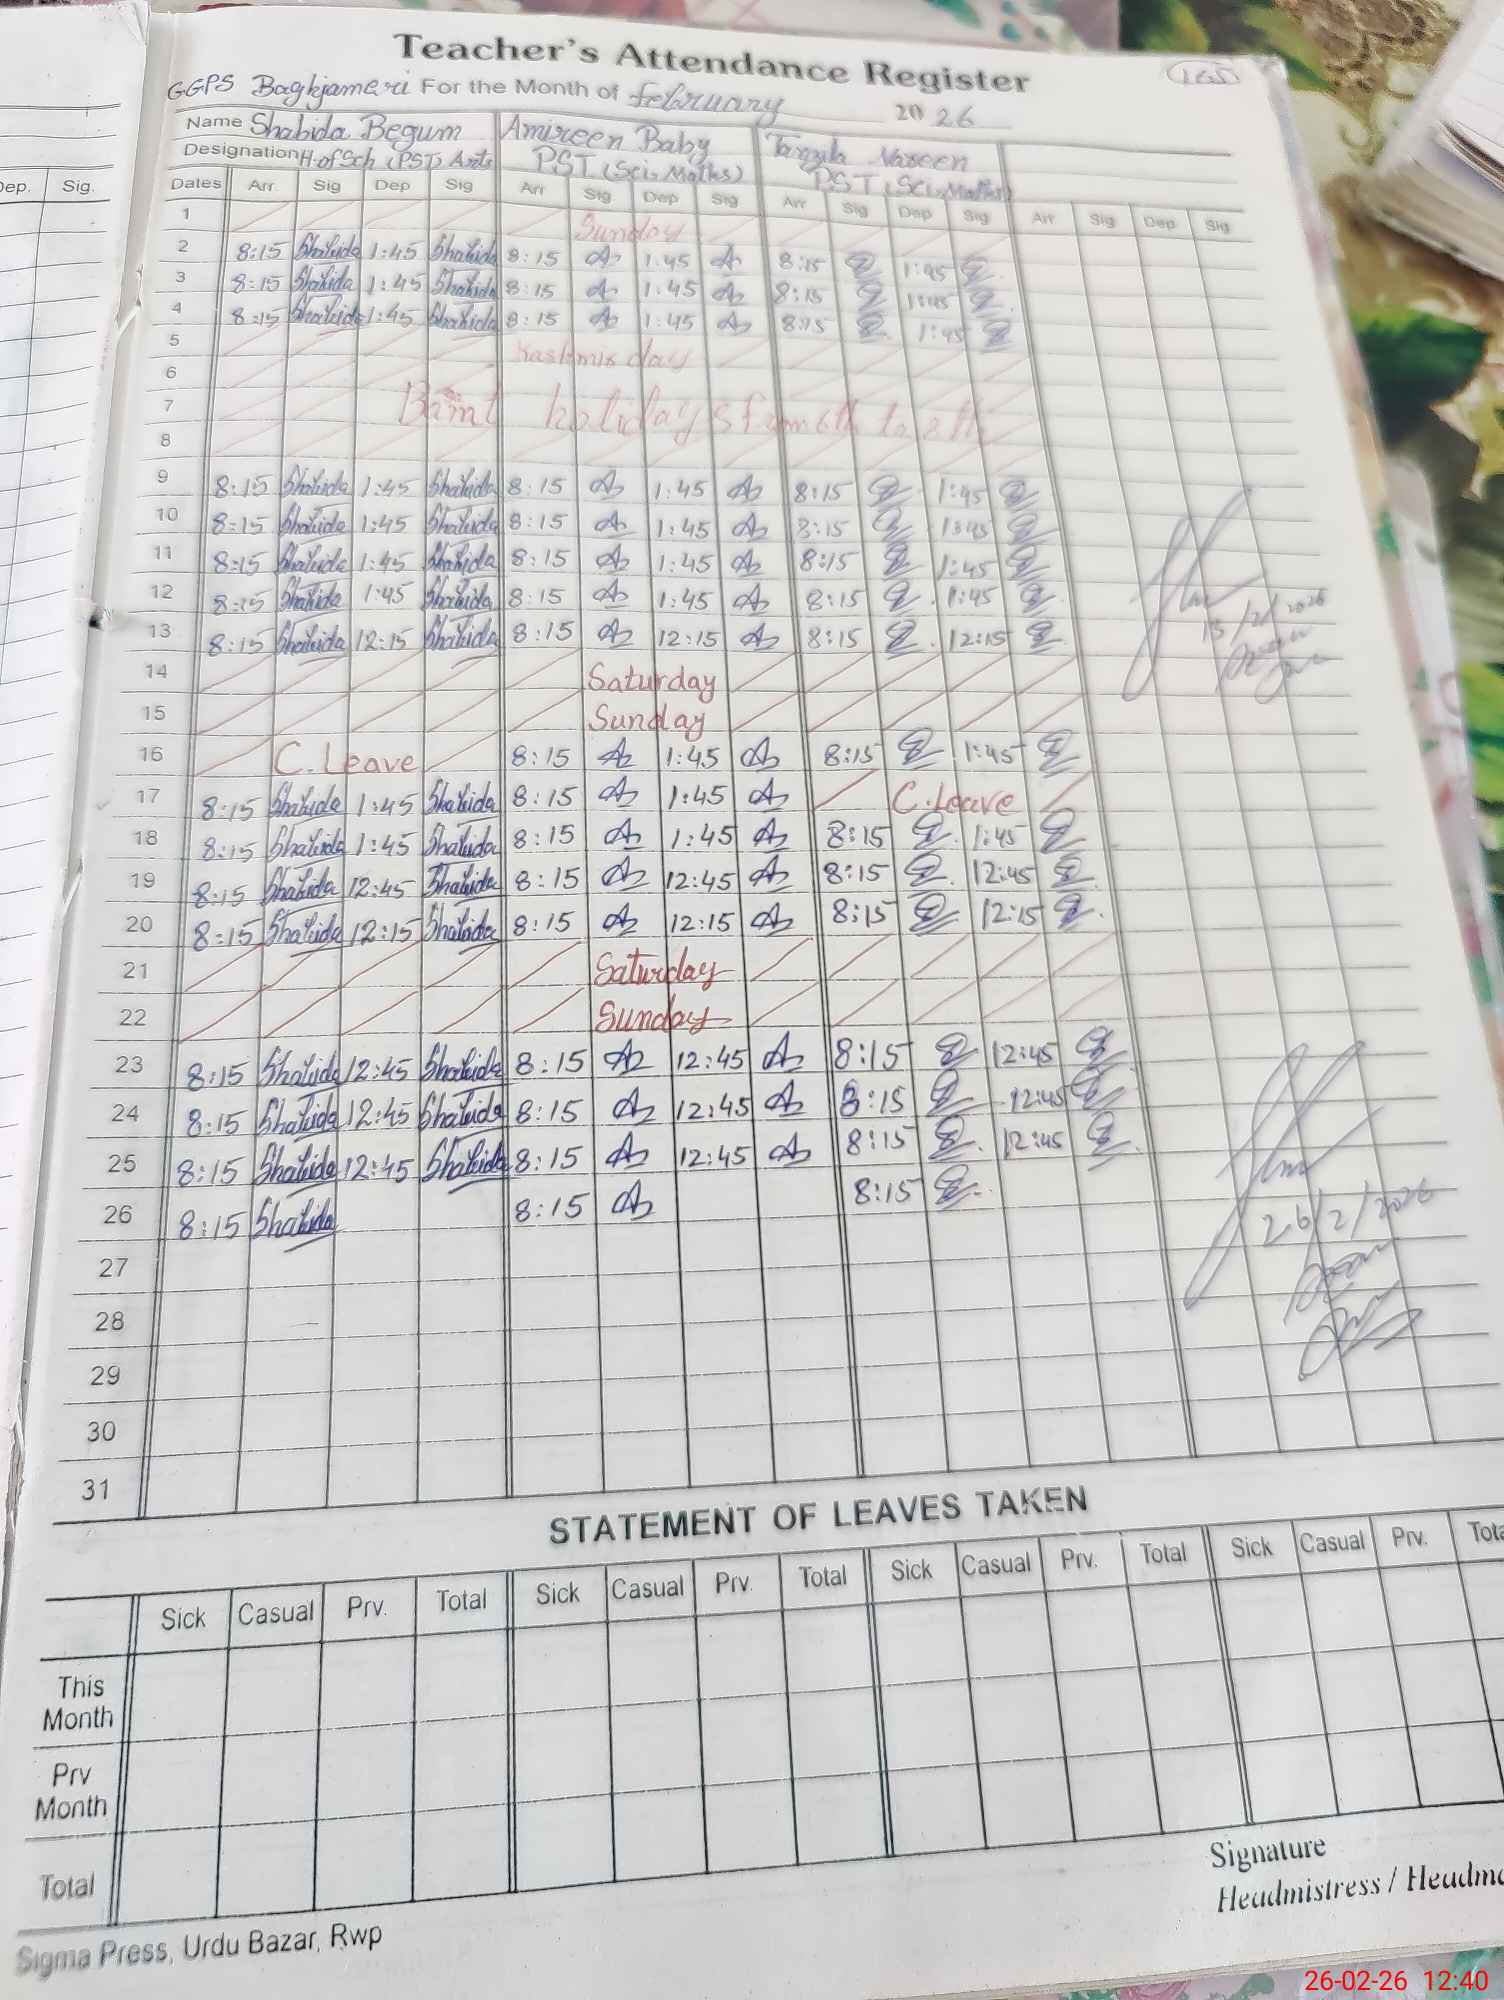 Teacher's Attendance Register
GGPS Baghjameri For the Month of february 2026
Name Shahida Begum Amireen Baby Tanzila Naseen
Designation H.of Sch (PST) Arts PST (Sci, Maths) PST (Sci, Maths)
Dep. Sig.
Dates Arr. Sig Dep Sig Arr Sig Dep Sig Arr Sig Dep Sig Arr Sig Dep Sig
1 Sunday
2 8:15 Shahida 1:45 Shahida 8:15 1:45 8:15 1:45
3 8:15 Shahida 1:45 Shahida 8:15 1:45 8:15 1:45
4 8:15 Shahida 1:45 Shahida 8:15 1:45 8:15 1:45
5 Kashmir day
6
7 holidays from 6th to 8th
8
9 8:15 Shahida 1:45 Shahida 8:15 1:45 8:15 1:45
10 8:15 Shahida 1:45 Shahida 8:15 1:45 8:15 1:45
11 8:15 Shahida 1:45 Shahida 8:15 1:45 8:15 1:45
12 8:15 Shahida 1:45 Shahida 8:15 1:45 8:15 1:45
13 8:15 Shahida 12:15 Shahida 8:15 12:15 8:15 12:15
14 Saturday
15 Sunday
16 C. Leave 8:15 1:45 8:15 1:45
17 8:15 Shahida 1:45 Shahida 8:15 1:45 C. Leave
18 8:15 Shahida 1:45 Shahida 8:15 1:45 8:15 1:45
19 8:15 Shahida 12:45 Shahida 8:15 12:45 8:15 12:45
20 8:15 Shahida 12:15 Shahida 8:15 12:15 8:15 12:15
21 Saturday
22 Sunday
23 8:15 Shahida 12:45 Shahida 8:15 12:45 8:15 12:45
24 8:15 Shahida 12:45 Shahida 8:15 12:45 8:15 12:45
25 8:15 Shahida 12:45 Shahida 8:15 12:45 8:15 12:45
26 8:15 Shahida 8:15 8:15
26/2/2026
27
28
29
30
31
STATEMENT OF LEAVES TAKEN
Sick Casual Prv. Total Sick Casual Prv. Total Sick Casual Prv. Total Sick Casual Prv.
This
Month
Prv
Month
Total
Signature
Headmistress /
Sigma Press, Urdu Bazar, Rwp
26-02-26 12:40